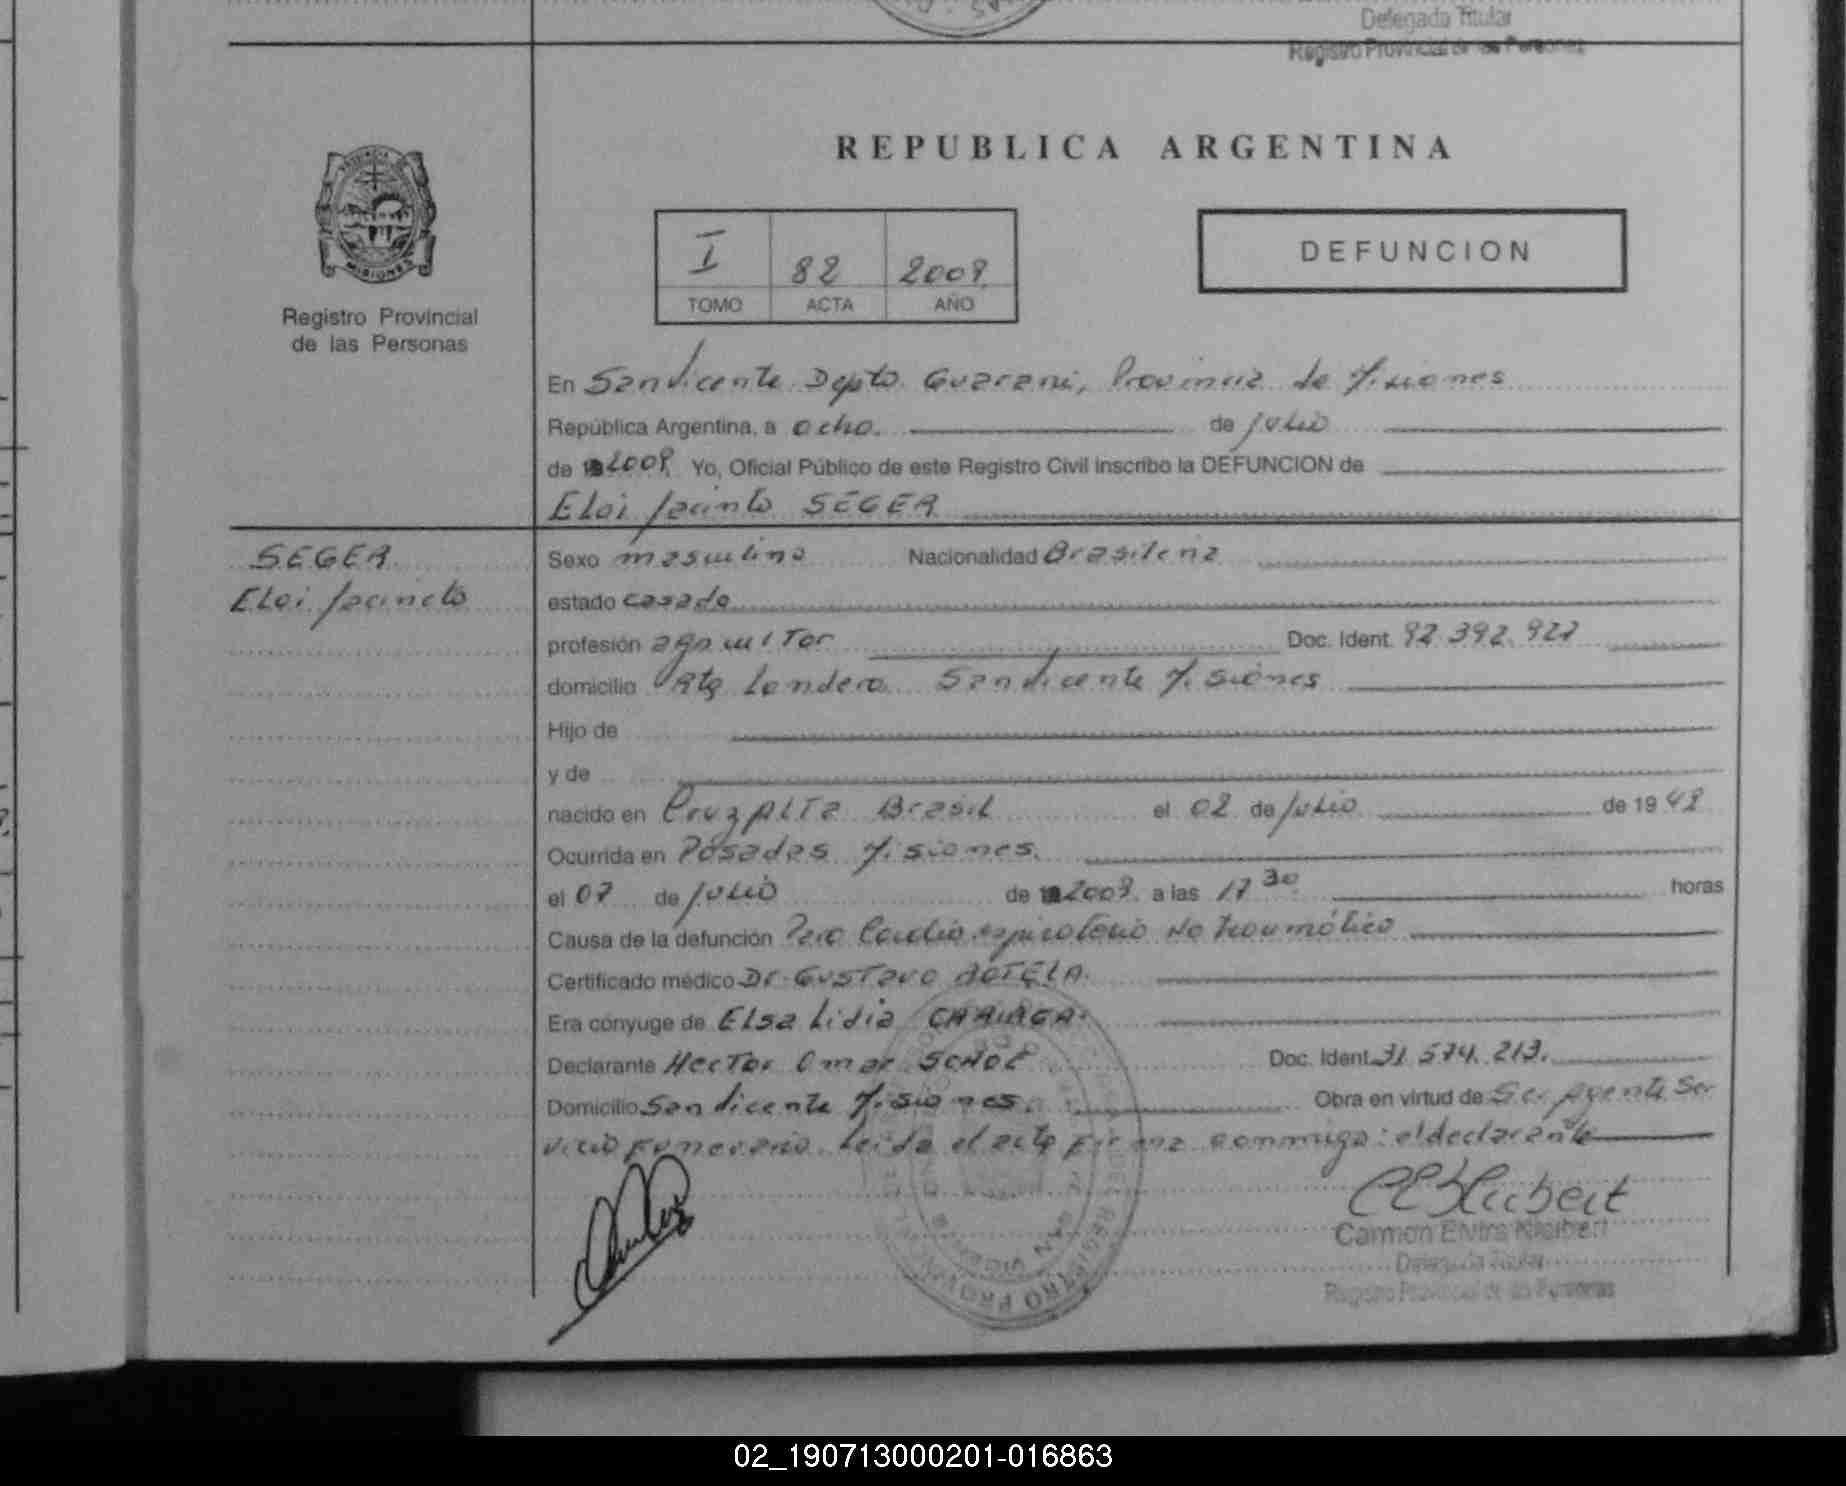 Delegada Titular
Registro Provincial de las Personas
REPUBLICA ARGENTINA
PROVINCIA DE
MISIONES
Registro Provincial
de las Personas
I 82 2009.
TOMO ACTA AÑO
DEFUNCION
En San Vicente Depto. Guarani, Provincia de Misiones
República Argentina, a ocho. de julio
de 2009. Yo, Oficial Público de este Registro Civil inscribo la DEFUNCION de
Eloi Jacinto SEGER
SEGER
Eloi Jacinto
Sexo masculino Nacionalidad Brasilena
estado casado
profesión agricultor Doc. Ident. 92.392.927
domicilio Londero San Vicente Misiones
Hijo de
y de
nacido en Cruz Alta Brasil el 02 de julio de 1948
Ocurrida en Posadas Misiones.
el 07 de julio de 2009. a las 17 30 horas
Causa de la defunción Paro Cardio respiratorio No traumático
Certificado médico Dr. Gustavo BOTELA.
Era cónyuge de Elsa Lidia
Declarante Hector Omar SCHOE Doc. Ident. 31.574.213.
Domicilio San Vicente Misiones. Obra en virtud de Ser Agente Ser
vicio Funerario. Leida el acta firma conmigo: el declarante
REGISTRO PROVINCIAL DE
SAN VICENTE
Carmen Elvira Kleibert
Delegada Titular
Registro Provincial de las Personas
02_190713000201-016863